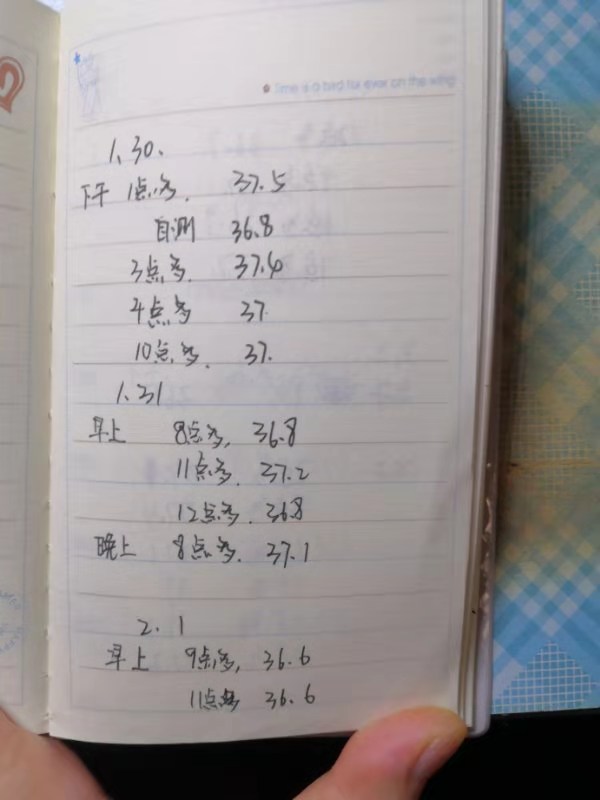 Time is a bird for ever on the wing
1、30、
下午 1点多. 37.5
自测 36.8
3点多. 37.4
4点多 37.
10点多. 37.
1.31
早上 8点多, 36.8
11点多. 37.2
12点多. 36.8
晚上 8点多. 37.1
2. 1
早上 9点多, 36.6
11点多 36.6